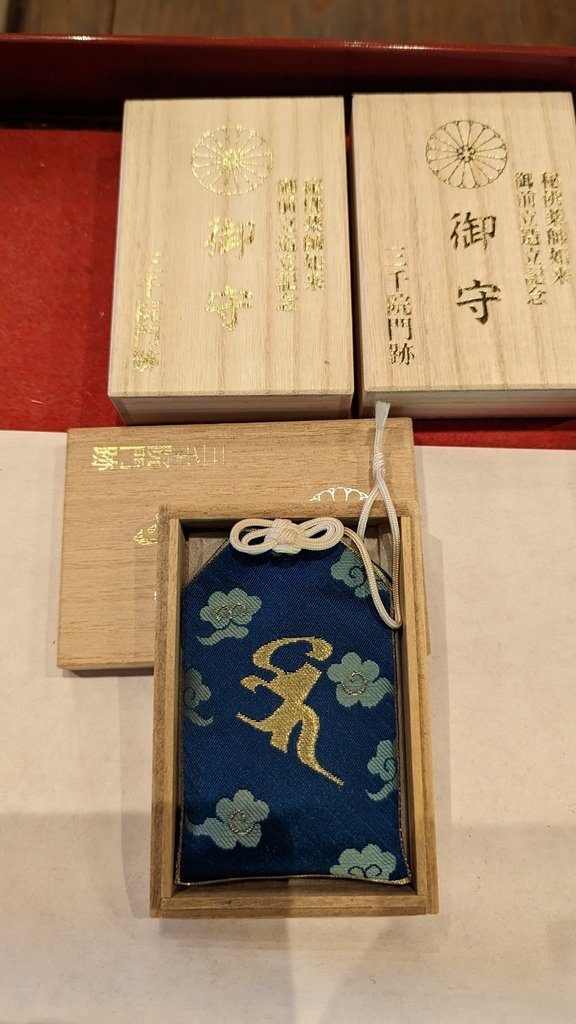 秘佛薬師如来
御前立造立記念
御守
三千院門跡
秘佛薬師如来
御前立造立記念
御守
三千院門跡
三千院門跡